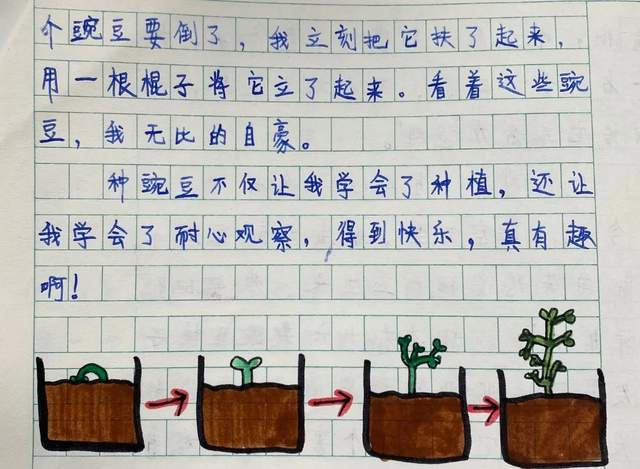 个豌豆要倒了，我立刻把它扶了起来，
用一根棍子将它立了起来。看着这些豌
豆，我无比的自豪。
种豌豆不仅让我学会了种植，还让
我学会了耐心观察，得到快乐，真有趣
啊！